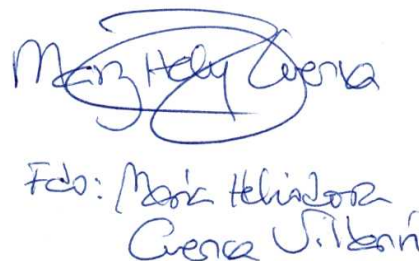 Mary Hely Cuenca
Fdo: María Heliodora
Cuenca